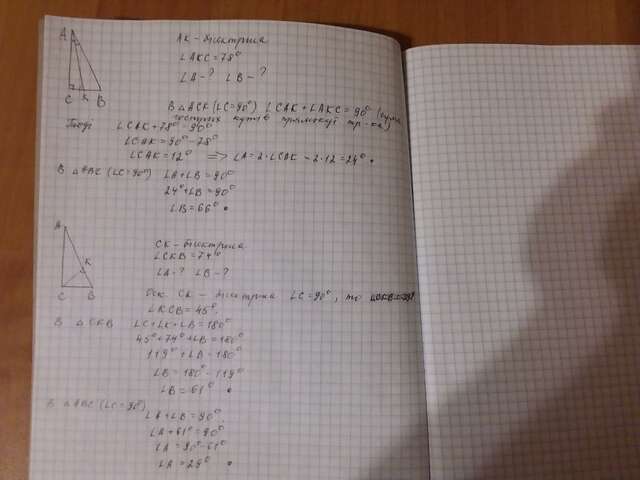 A
C K B
AK - бісектриса
∠AKC = 78°
∠A - ? ∠B - ?
В △ACK (∠C=90°) ∠CAK + ∠AKC = 90° (сума
гострих кутів прямокут. тр-ка)
Тоді ∠CAK + 78° = 90°
∠CAK = 90° - 78°
∠CAK = 12° => ∠A = 2·∠CAK = 2·12 = 24°.
В △ABC (∠C=90°) ∠A + ∠B = 90°
24° + ∠B = 90°
∠B = 66°.
A
K
C B
CK - бісектриса
∠CKB = 74°
∠A - ? ∠B - ?
Оск. CK - бісектриса ∠C = 90°, то
∠KCB = 45°.
В △CKB ∠C + ∠K + ∠B = 180°
45° + 74° + ∠B = 180°
119° + ∠B = 180°
∠B = 180° - 119°
∠B = 61°.
В △ABC (∠C=90°)
∠A + ∠B = 90°
∠A + 61° = 90°
∠A = 90° - 61°
∠A = 29°.